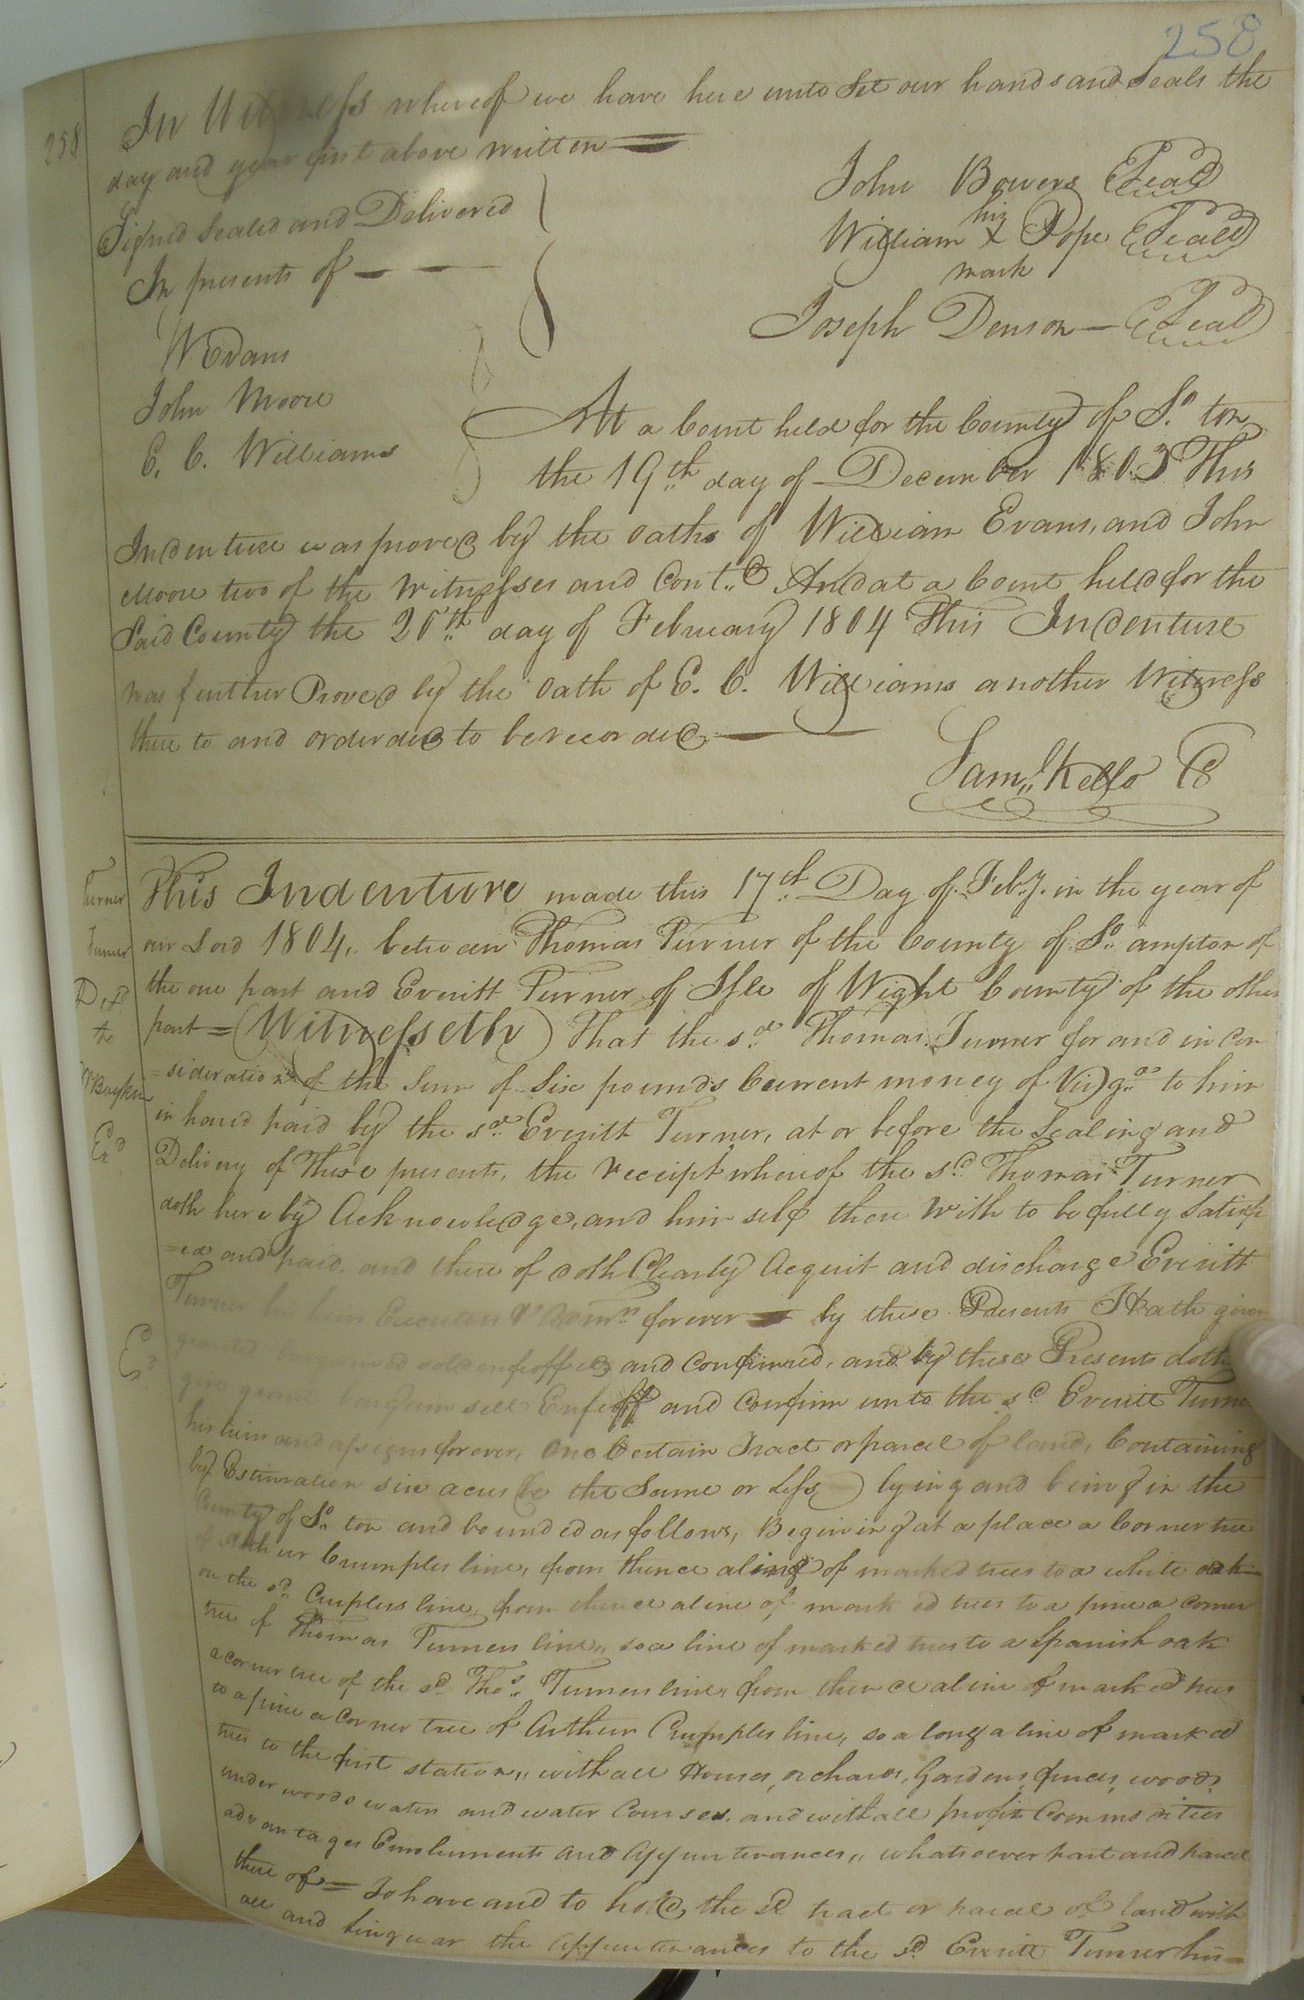 258
258
In Witness whereof we have here unto Set our hands and Seals the
day and year first above written
Signed Sealed and Delivered
In presents of
John Bowers Seal
his
William X Pope Seal
mark
Joseph Denson Seal
W Evans
John Moore
E. C. Williams
At a Court held for the County of So. ton
the 19th day of December 1803 This
Indenture was proved by the oaths of William Evans, and John
Moore two of the Witnesses and Cont.d And at a Court held for the
Said County the 20th day of February 1804 This Indenture
was further Proved by the Oath of E. C. Williams another Witness
there to and orderded to be recorded
Saml. Kello C
Turner
Turner
D,d
the
W Boykin
Exd
Exd
This Indenture made this 17th Day of Feby. in the year of
our Lord 1804,, between Thomas Turner of the County of So. ampton of
the one part and Everitt Turner of Isle of Wight County of the other
part = (Witnesseth) That the sd. Thomas Turner for and in Con
=sideration of the Sum of Six pounds Current money of Virga. to him
in hand paid by the sd. Everitt Turner, at or before the Sealing and
Delivery of These presents, the receipt whereof the sd. Thomas Turner
doth hereby Acknowledge, and him self there With to be fully Satisfi
=ed and paid, and there of doth Clearly Acquit and discharge Everitt
Turner his heirs Executors & Admrs forever by these Presents Hath given
granted bargained sold enfeoffed and Confirmed, and by these Presents doth
give grant bargain sell Enfeoff and Confirm unto the sd Everitt Turner
his heirs and assigns forever, One Certain Tract or parcel of land, Containing
by Estimation six acres (be the Same or Less) lying and being in the
County of So. ton and bounded as follows, Begining at a place a Corner tree
of Arthur Crumples line, from thence a line of marked trees to a white oak
on the sd. Cruples line, from thence a line of marked trees to a pine a corner
tree of Thomas Turners line,, so a line of marked trees to a Spanish oak
a corner tree of the sd. Thos. Turners line, from thence a line of marked trees
to a pine a Corner tree of Arthur Crumples line, so a long a line of marked
trees to the first station,, with all Houses, orchards, Gardens, fences, woods,
under woods waters and water Courses. and with all profits Commodities
advantages Emoluments and Appurtenances,, whatsoever part and parcel
there of = To have and to hold, the sd tract or parcel of land with
all and Singular the appurtenances to the sd Everitt Turner his